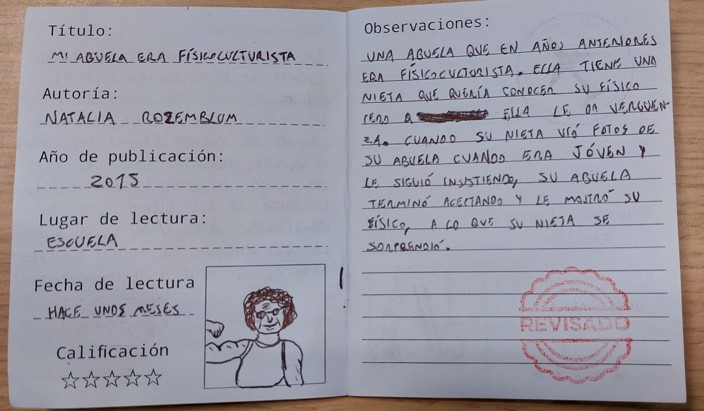 Título:
MI ABUELA ERA FÍSICOCULTURISTA
Autoría:
NATALIA ROZEMBLUM
Año de publicación:
2015
Lugar de lectura:
ESCUELA
Fecha de lectura
HACE UNOS MESES
Calificación
Observaciones:
UNA ABUELA QUE EN AÑOS ANTERIORES
ERA FÍSICOCULTURISTA. ELLA TIENE UNA
NIETA QUE QUERÍA CONOCER SU FÍSICO
PERO A ELLA LE DA VERGUEN-
ZA. CUANDO SU NIETA VIÓ FOTOS DE
SU ABUELA CUANDO ERA JÓVEN Y
LE SIGUIÓ INSISTIENDO, SU ABUELA
TERMINÓ ACEPTANDO Y LE MOSTRÓ SU
FÍSICO, A LO QUE SU NIETA SE
SORPRENDIÓ.
REVISADO